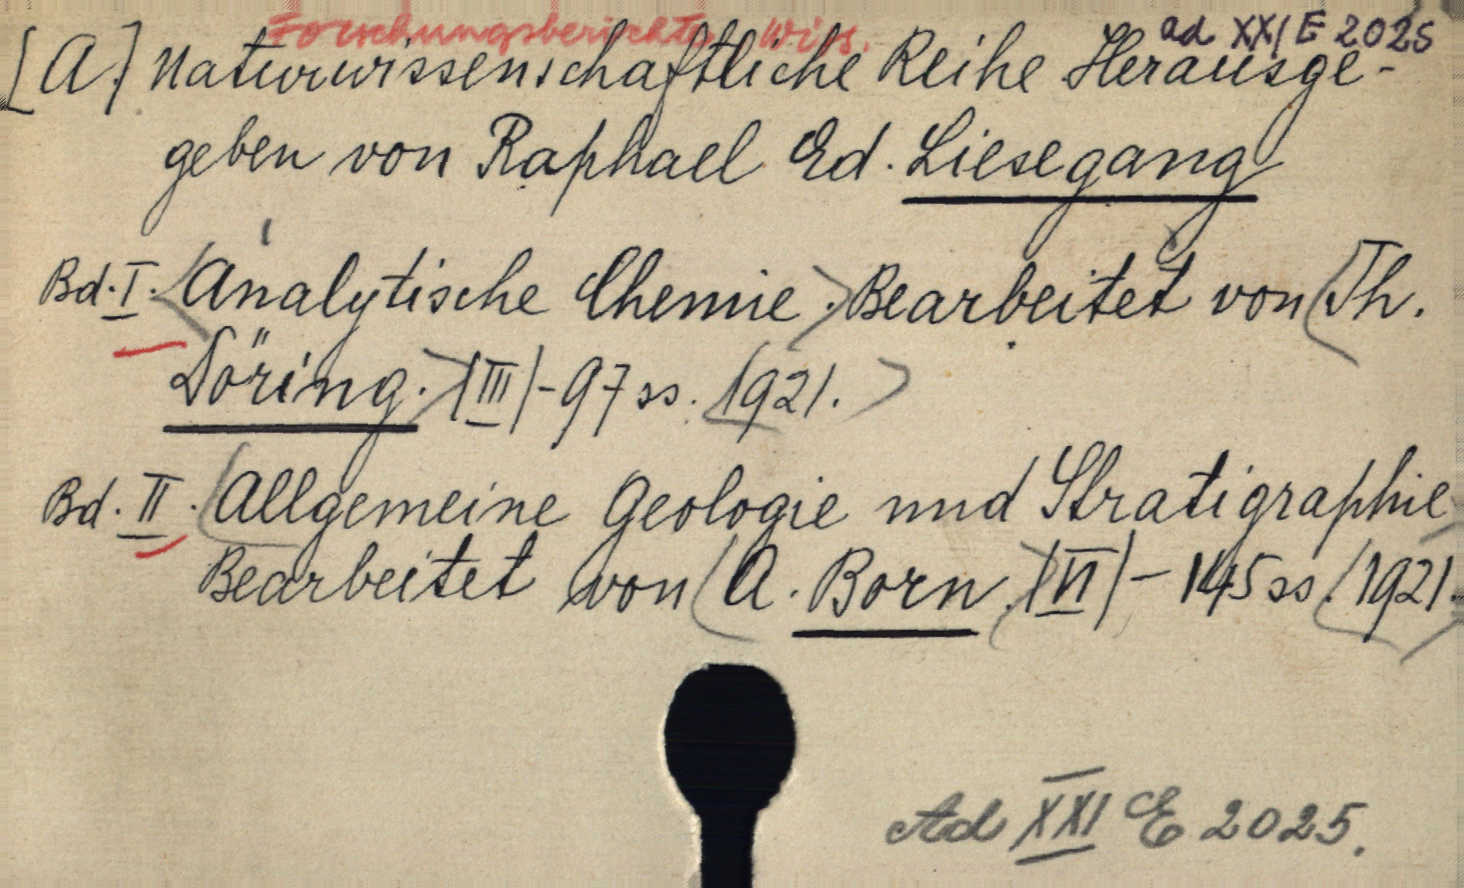 Forschungsberichte, Wiss. ad XXI E 2025
[A.] Naturwissenschaftliche Reihe Herausge-
geben von Raphael Ed. Liesegang
Bd. I. Analytische Chemie. Bearbeitet von Th.
Döring. (III)-97 ss. 1921.
Bd. II. Allgemeine Geologie und Stratigraphie
Bearbeitet von A. Born. (VI)-145 ss. 1921.
Ad XXI E 2025.